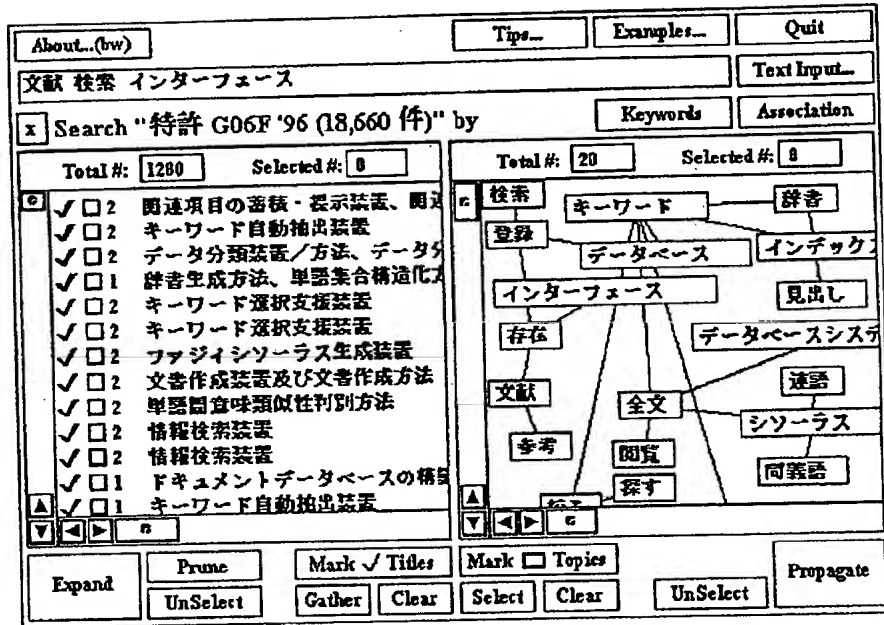 About...(bw)
Tips...
Examples...
Quit
文献 検索 インターフェース
Text Input...
x Search "特許 G06F '96 (18,660 件)" by
Keywords
Association
Total #: 1280
Selected #: 0
✓ □ 2 関連項目の蓄積・提示装置、関連
✓ □ 2 キーワード自動抽出装置
✓ □ 2 データ分類装置/方法、データ分
✓ □ 1 辞書生成方法、単語集合構造化方
✓ □ 2 キーワード選択支援装置
✓ □ 2 キーワード選択支援装置
✓ □ 2 ファジイシソーラス生成装置
✓ □ 2 文書作成装置及び文書作成方法
✓ □ 2 単語間意味類似性判別方法
✓ □ 2 情報検索装置
✓ □ 2 情報検索装置
✓ □ 1 ドキュメントデータベースの構築
✓ □ 1 キーワード自動抽出装置
Total #: 20
Selected #: 0
検索
キーワード
辞書
登録
データベース
インデックス
インターフェース
見出し
存在
データベースシステ
文献
全文
連語
シソーラス
参考
閲覧
同義語
探す
Expand
Prune
Mark ✓ Titles
Mark □ Topics
Propagate
UnSelect
Gather
Clear
Select
Clear
UnSelect